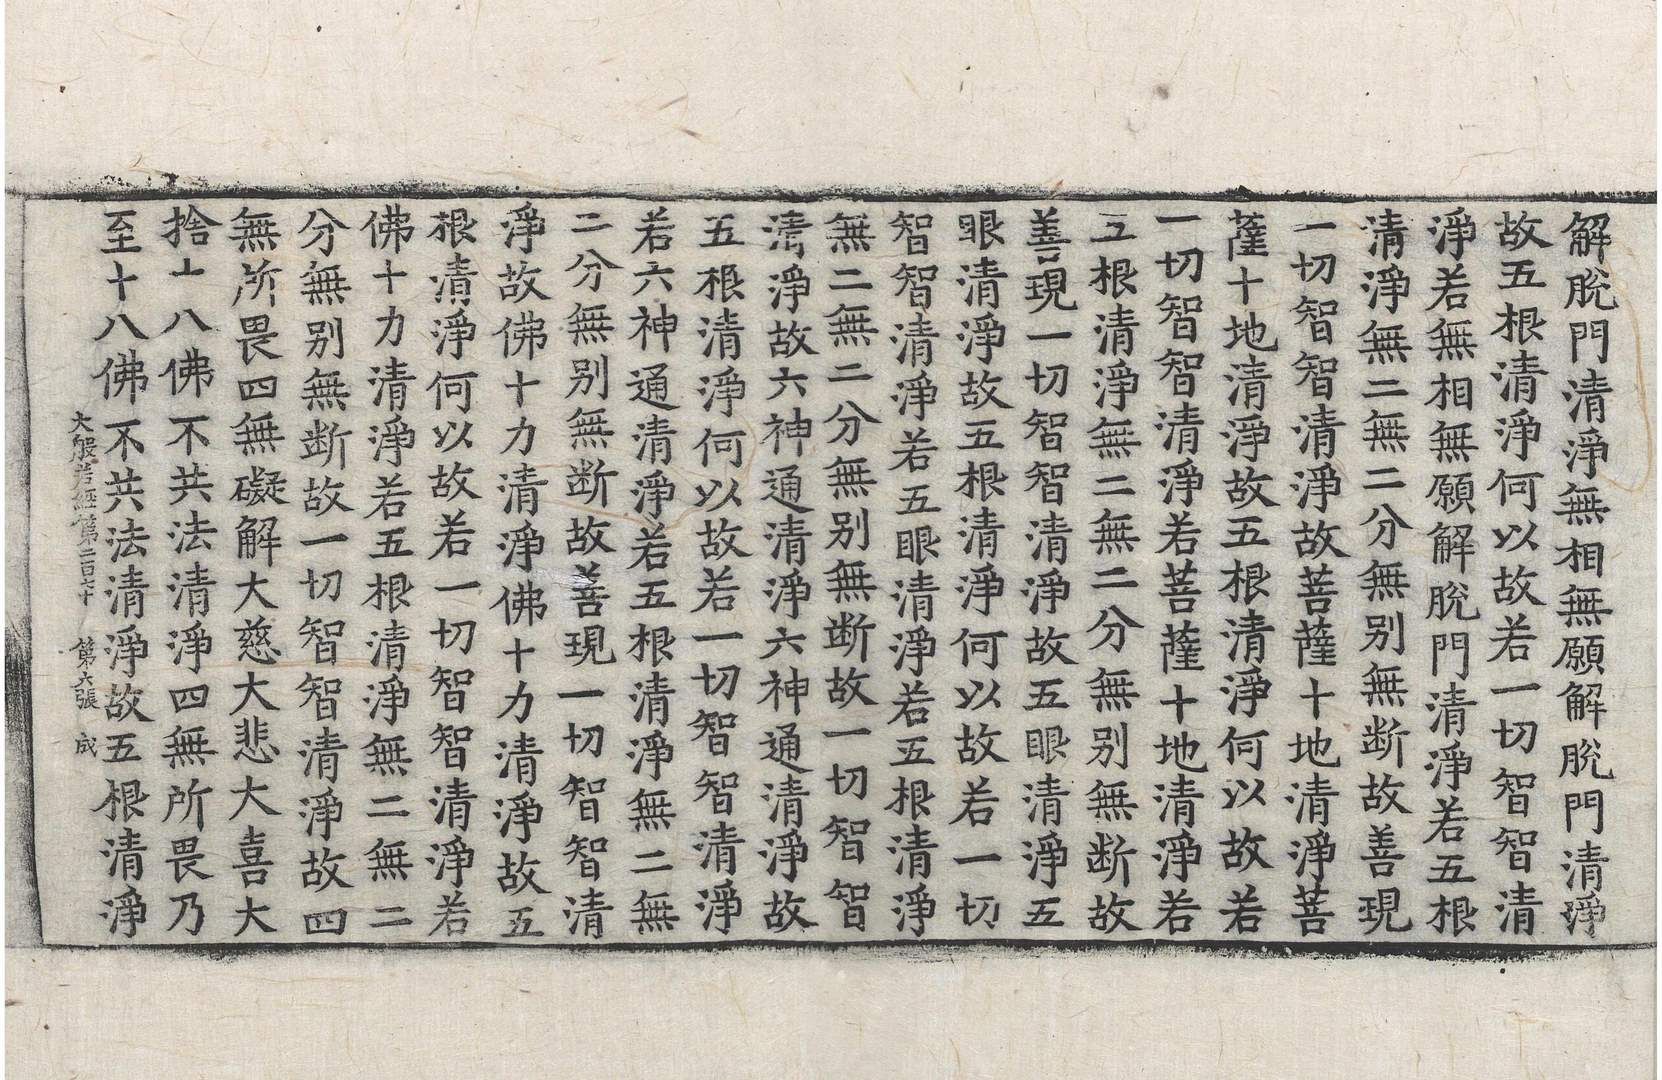 解脫門清淨無相無願解脫門清淨
故五根清淨何以故若一切智智清
淨若無相無願解脫門清淨若五根
清淨無二無二分無别無断故善現
一切智智清淨故菩薩十地清淨菩
薩十地清淨故五根清淨何以故若
一切智智清淨若菩薩十地清淨若
五根清淨無二無二分無别無断故
善現一切智智清淨故五眼清淨五
眼清淨故五根清淨何以故若一切
智智清淨若五眼清淨若五根清淨
無二無二分無别無断故一切智智
清淨故六神通清淨六神通清淨故
五根清淨何以故若一切智智清淨
若六神通清淨若五根清淨無二無
二分無别無断故善現一切智智清
淨故佛十力清淨佛十力清淨故五
根清淨何以故若一切智智清淨若
佛十力清淨若五根清淨無二無二
分無别無断故一切智智清淨故四
無所畏四無礙解大慈大悲大喜大
捨十八佛不共法清淨四無所畏乃
至十八佛不共法清淨故五根清淨
大般若經第二百六十 第六張 成